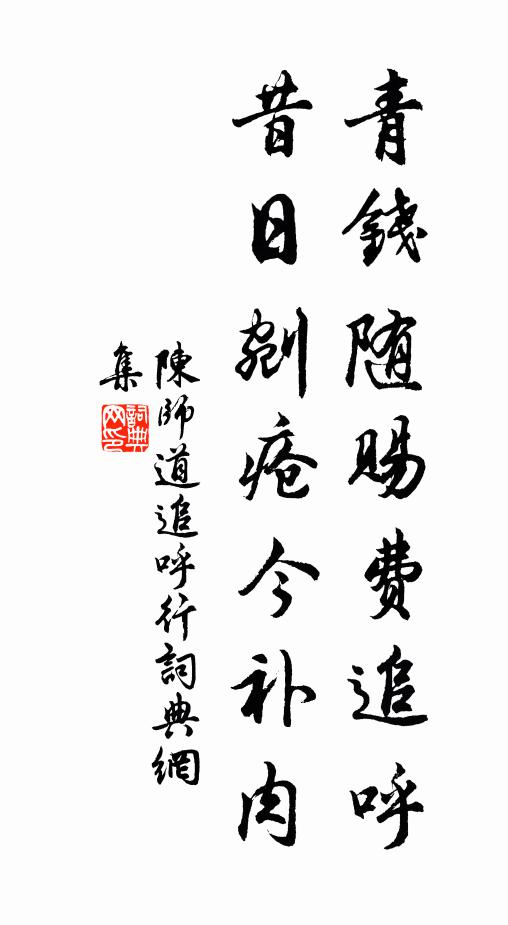 青錢随賜費追呼
昔日剜疮今补肉
陳師道追呼行詞典網
集
詞典网印